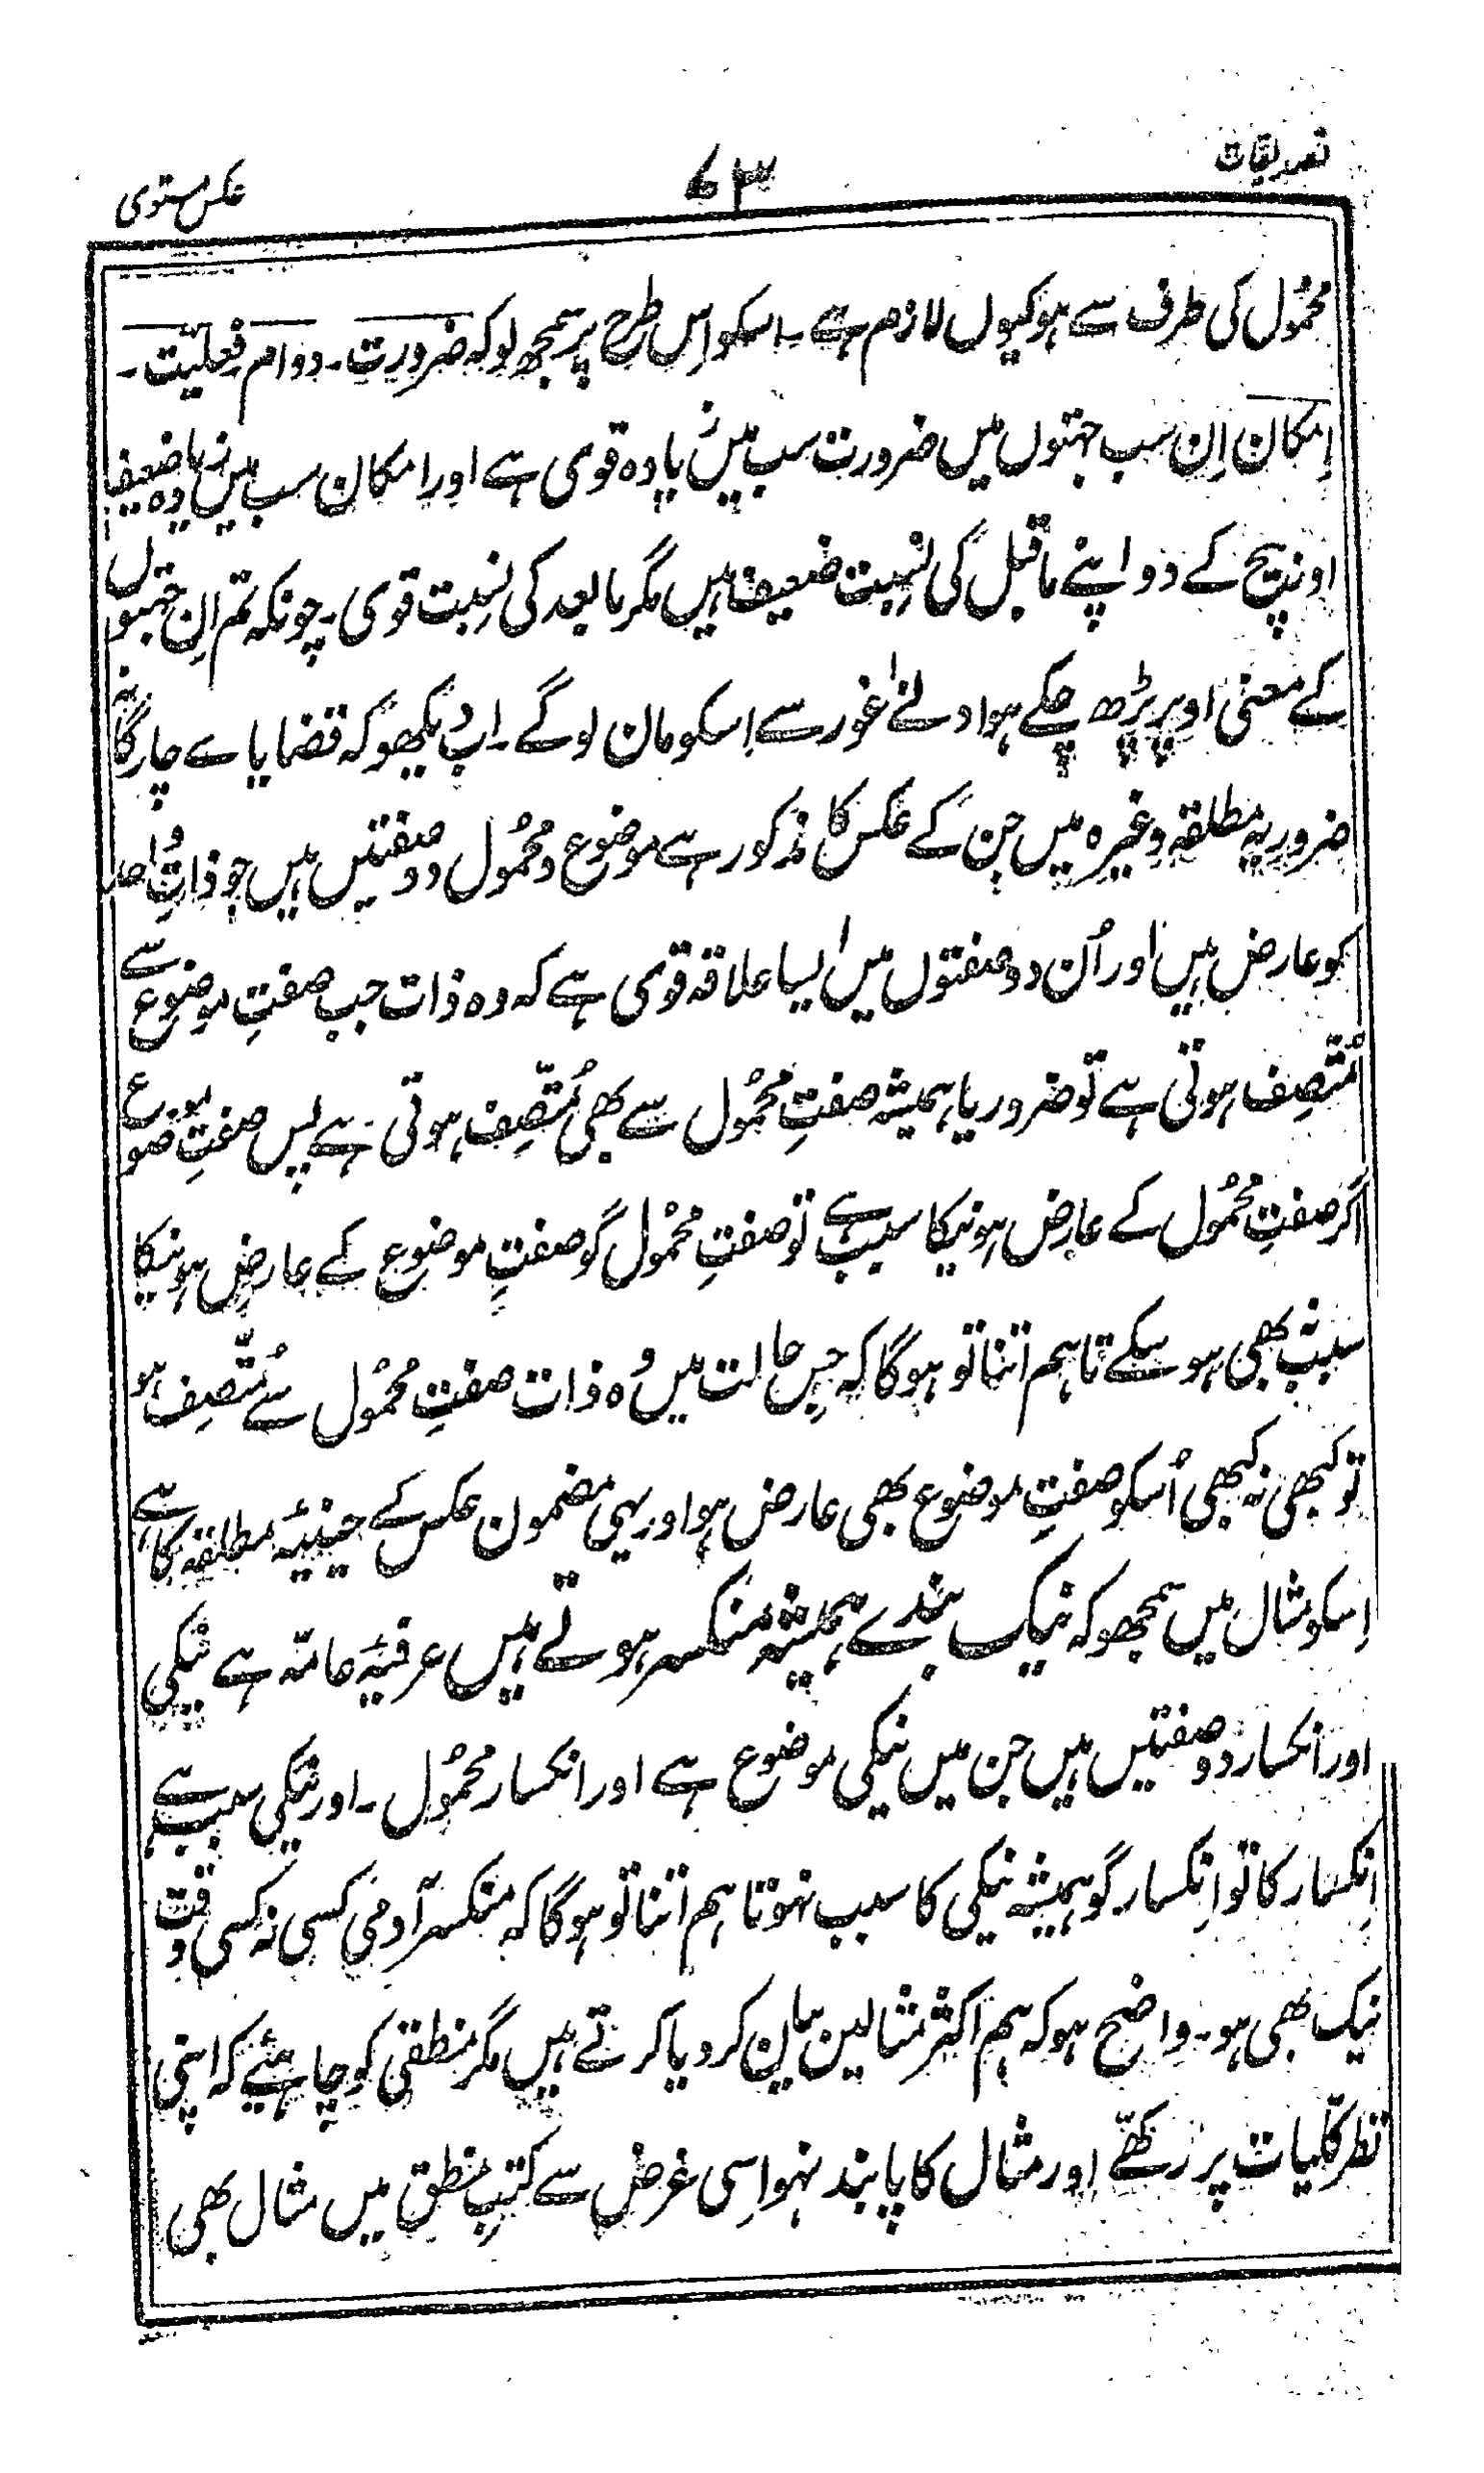 تصدیقات
۷۳
عکس مستوی
محمُول کی طرف سے ہو کیوں لازم ہے۔ اسکو اِس طرح پر سمجھ لو کہ ضرورت۔ دوام۔ فعلیّت۔
اِمکان اِن سب جہتوں میں ضرورت سب میں زیادہ قوی ہے اور امکان سب میں زیادہ ضعیف
اور بیچ کے دو اپنے ماقبل کی نِسبت ضعیف ہیں مگر مابعد کی نِسبت قوی۔ چونکہ تم اِن جہتوں
کے معنی اوپر پڑھ چکے ہو ادنےٰ غور سے اِسکو مان لوگے۔ اب دیکھو کہ قضایاے چارگانہ
ضروریہ مطلقہ وغیرہ میں جن کے عکس کا مذکور ہے موضوع و محمُول دو صفتیں ہیں جو ذاتِ واحد
کو عارض ہیں اور اُن دو صفتوں میں ایسا علاقہ قوی ہے کہ وہ ذات جب صفتِ موضوع سے
مُتّصِف ہوتی ہے تو ضرور یا ہمیشہ صفتِ محمُول سے بھی مُتّصِف ہوتی ہے پس صفتِ موضوع
اگر صفتِ محمُول کے عارض ہونیکا سبب ہے تو صفتِ محمُول گو صفتِ موضوع کے عارض ہونیکا
سبب نہ بھی ہو سکے تاہم اتنا تو ہوگا کہ جس حالت میں وُہ ذات صفتِ محمُول سے مُتّصِف ہو
تو کبھی نہ کبھی اُسکو صفتِ موضوع بھی عارض ہو اور یہی مضمون عکس کے حینیّہ مطلقہ کا ہے
اِسکو مثال میں سمجھو کہ نیک بندے ہمیشہ منکسر ہوتے ہیں عرفیّہ عامّہ ہے نیکی
اور انکسار دو صفتیں ہیں جن میں نیکی موضوع ہے اور انکسار محمُول۔ اور نیکی سبب ہے
اِنکسار کا تو اِنکسار گو ہمیشہ نیکی کا سبب نہو تاہم اتنا تو ہوگا کہ منکسر آدمی کسی نہ کسی وقت
نیک بھی ہو۔ واضح ہو کہ ہم اکثر مثالین بیان کر دیا کرتے ہیں مگر منطقی کو چاہئیے کہ اپنی
نظر کلّیات پر رکھّے اور مثال کا پابند نہو اسی غرض سے کتبِ منطق میں مثال بھی